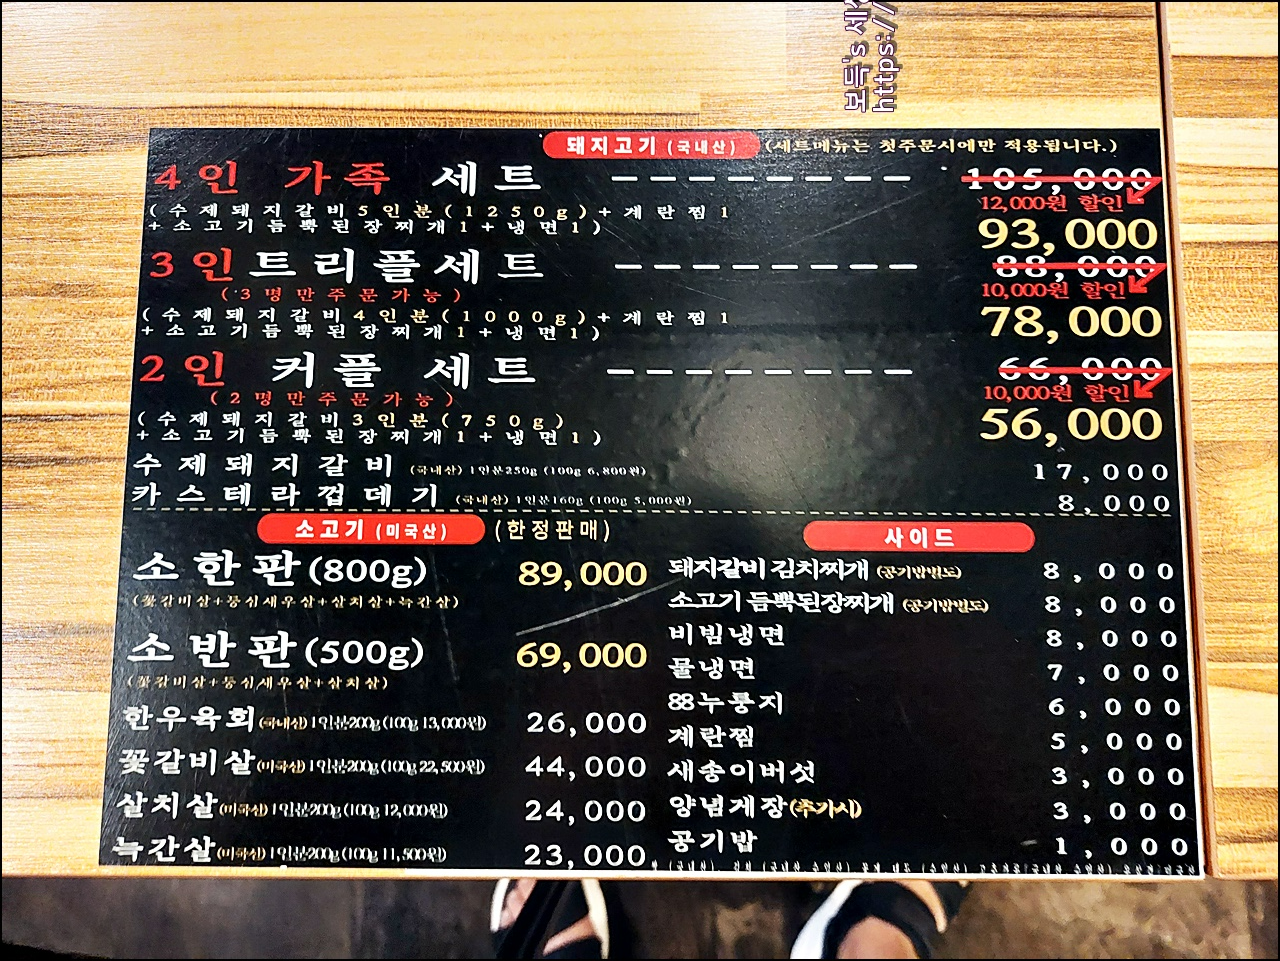 보둑's 세상
https://
돼지고기 (국내산) (세트메뉴는 첫주문시에만 적용됩니다.)
4인 가족 세트 ---------- 105,000
12,000원 할인
(수제돼지갈비5인분(1250g)+계란찜1
+소고기듬뿍된장찌개1+냉면1)
93,000
3인트리플세트 ---------- 88,000
(3명만주문가능)
10,000원 할인
(수제돼지갈비4인분(1000g)+계란찜1
+소고기듬뿍된장찌개1+냉면1)
78,000
2인 커플 세트 ---------- 66,000
(2명만주문가능)
10,000원 할인
(수제돼지갈비3인분(750g)
+소고기듬뿍된장찌개1+냉면1)
56,000
수제돼지갈비 (국내산) 1인분250g (100g 6,800원) 17,000
카스테라껍데기 (국내산) 1인분160g (100g 5,000원) 8,000
소고기 (미국산) (한정판매)
소한판(800g) 89,000
(꽃갈비살+등심새우살+살치살+늑간살)
소반판(500g) 69,000
(꽃갈비살+등심새우살+살치살)
한우육회(국내산) 1인분200g (100g 13,000원) 26,000
꽃갈비살(미국산) 1인분200g (100g 22,500원) 44,000
살치살(미국산) 1인분200g (100g 12,000원) 24,000
늑간살(미국산) 1인분200g (100g 11,500원) 23,000
사이드
돼지갈비 김치찌개 (공기밥별도) 8,000
소고기 듬뿍된장찌개 (공기밥별도) 8,000
비빔냉면 8,000
물냉면 7,000
88누룽지 6,000
계란찜 5,000
새송이버섯 3,000
양념게장(추가시) 3,000
공기밥 1,000